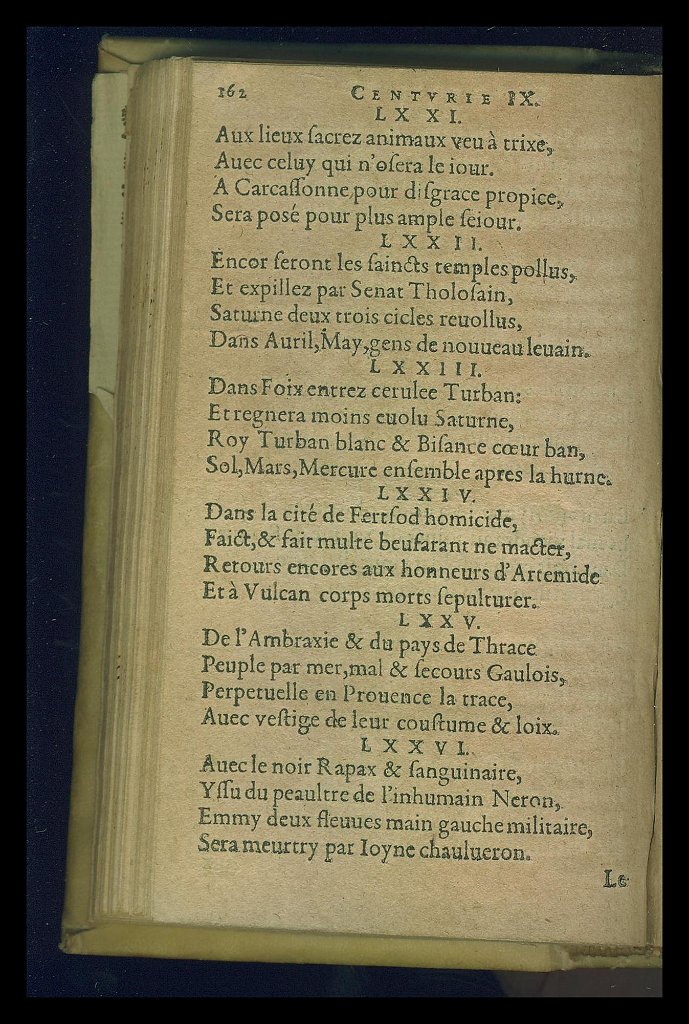 162 CENTVRIE IX.
LXXI.
Aux lieux ſacrez animaux veu à trixe,
Auec celuy qui n'oſera le iour.
A Carcaſſonne pour diſgrace propice,
Sera posé pour plus ample ſeiour.
LXXII.
Encor ſeront les ſaincts temples pollus,
Et expillez par Senat Tholoſain,
Saturne deux trois cicles reuollus,
Dans Auril, May, gens de nouueau leuain.
LXXIII.
Dans Foix entrez cerulee Turban:
Et regnera moins euolu Saturne,
Roy Turban blanc & Biſance cœur ban,
Sol, Mars, Mercure enſemble apres la hurne.
LXXIV.
Dans la cité de Fertſod homicide,
Faict, & fait multe beuſarant ne macter,
Retours encores aux honneurs d'Artemide
Et à Vulcan corps morts ſepulturer.
LXXV.
De l'Ambraxie & du pays de Thrace
Peuple par mer, mal & ſecours Gaulois,
Perpetuelle en Prouence la trace,
Auec veſtige de leur couſtume & loix.
LXXVI.
Auec le noir Rapax & ſanguinaire,
Yſſu du peaultre de l'inhumain Neron,
Emmy deux fleuues main gauche militaire,
Sera meurtry par Ioyne chaulueron.
Le